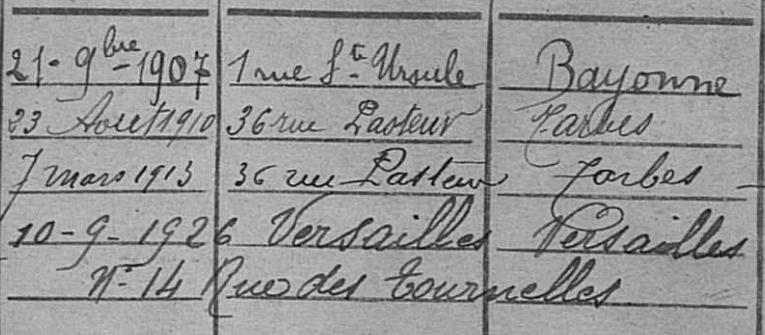 21-9bre-1907 1 rue Ste Ursule Bayonne
23 Août 1910 36 rue Pasteur Tarbes
7 mars 1913 36 rue Pasteur Tarbes
10-9-1926 Versailles Versailles
N° 14 Rue des Tournelles